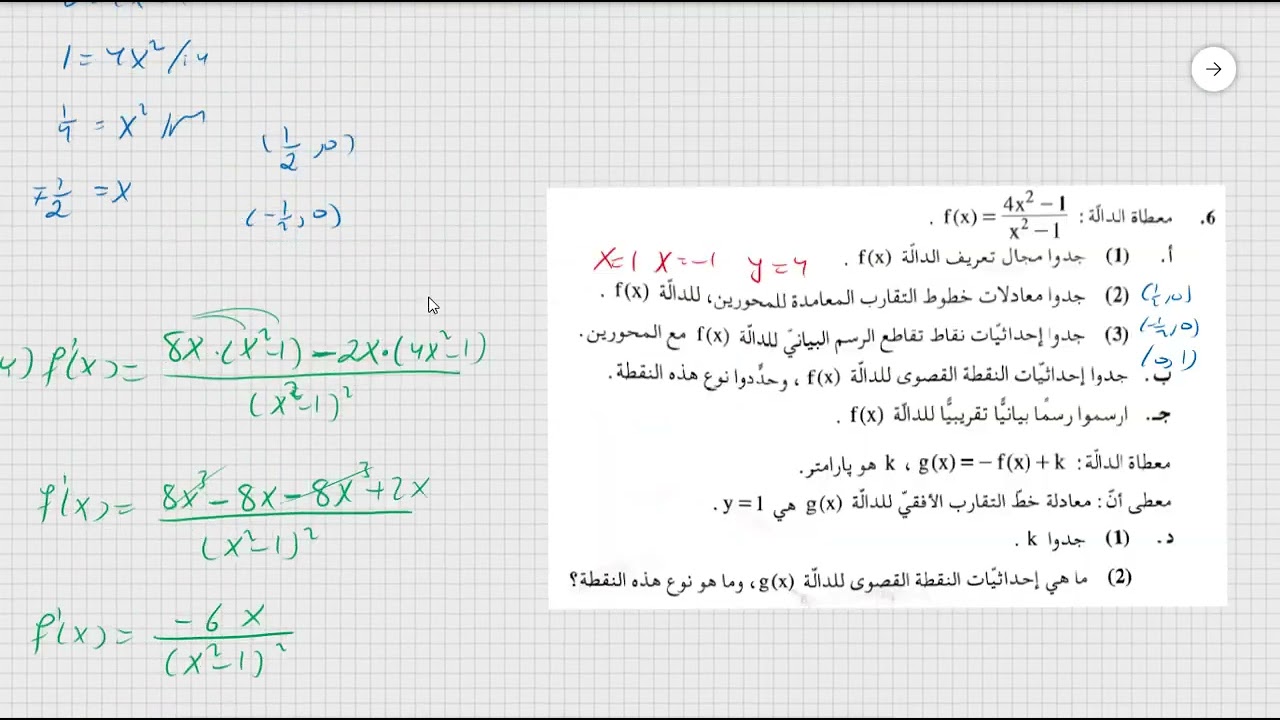 1 = 4x² /:4
1/4 = x² /√
∓1/2 = x
(1/2, 0)
(-1/2, 0)
4) f'(x) = (8x·(x²-1) - 2x·(4x²-1)) / (x²-1)²
f'(x) = (8x³ - 8x - 8x³ + 2x) / (x²-1)²
f'(x) = (-6x) / (x²-1)²
6. معطاة الدالّة: f(x) = (4x² - 1) / (x² - 1) .
أ. (1) جدوا مجال تعريف الدالّة f(x) .
x=1 x=-1 y=4
(2) جدوا معادلات خطوط التقارب المعامدة للمحورين، للدالّة f(x) .
(1/2, 0)
(3) جدوا إحداثيّات نقاط تقاطع الرسم البيانيّ للدالّة f(x) مع المحورين.
(-1/2, 0)
(0, 1)
ب. جدوا إحداثيّات النقطة القصوى للدالّة f(x) ، وحدِّدوا نوع هذه النقطة.
جـ. ارسموا رسمًا بيانيًّا تقريبيًّا للدالّة f(x) .
معطاة الدالّة: g(x) = - f(x) + k ، k هو پارامتر.
معطى أنّ: معادلة خطّ التقارب الأفقيّ للدالّة g(x) هي y = 1 .
د. (1) جدوا k .
(2) ما هي إحداثيّات النقطة القصوى للدالّة g(x)، وما هو نوع هذه النقطة؟